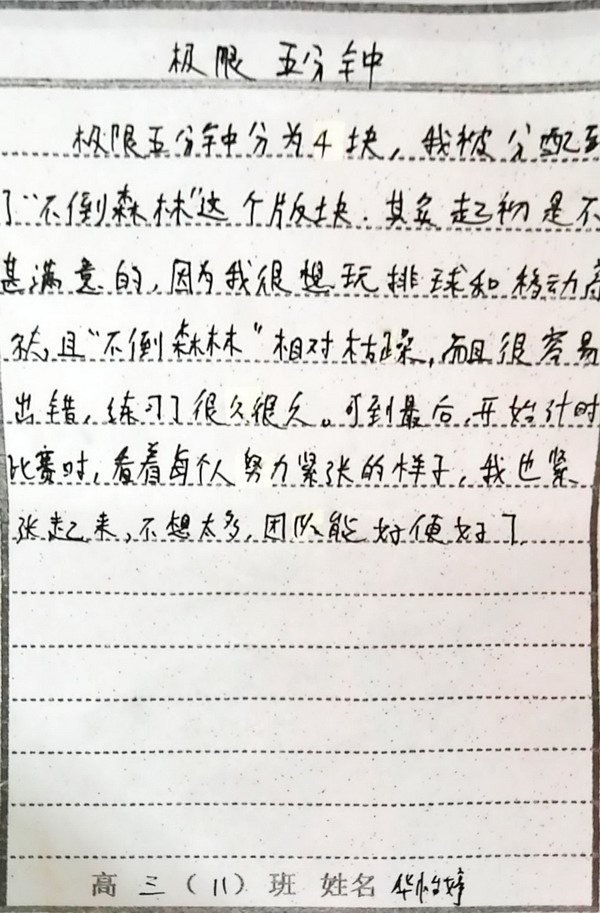 极限五分钟
极限五分钟分为4块，我被分配到
了“不倒森林”这个版块.其实起初是不
甚满意的,因为我很想玩排球和移动高
尔,且“不倒森林”相对枯躁,而且很容易
出错,练习了很久很久。可到最后,开始计时
比赛时,看着每个人努力紧张的样子,我也紧
张起来,不想太多,团队能好便好了.
高三(11)班 姓名 华怡婷